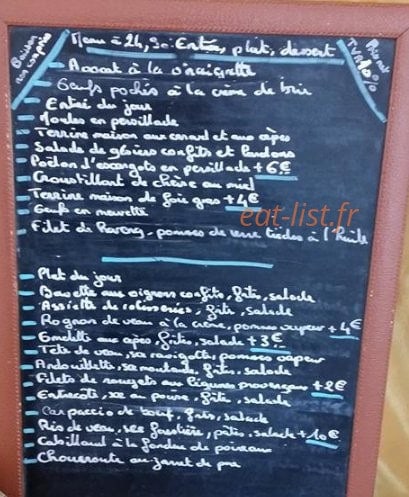 Boisson non comprise
Prix net
TVA 10%
Menu à 24,90 Entrée, plat, dessert
Avocat à la vinaigrette
Oeufs pochés à la crème de brie
Entrée du jour
Moules en persillade
Terrine maison aux canard et aux cèpes
Salade de gésiers confits et lardons
Poêlon d'escargots en persillade + 6€
Croustillant de chèvre au miel
Terrine maison de foie gras + 4€
Oeufs en meurette
eat-list.fr
Filet de hareng, pommes de terre tièdes à l'huile
Plat du jour
Bavette aux oignons confits, frites, salade
Assiette de, frite, salade
Rognon de veau à la crème, pommes vapeur + 4€
Omelette aux cèpes frites, salade + 3€
Tête de veau, sce ravigote, pommes vapeur
Andouillette, sce moutarde, frites, salade
Filets de rougets aux légumes provençaux + 2€
Entrecôte, sce au poivre, frite, salade
Carpaccio de boeuf, frites, salade
Ris de veau, sce forestière, pâtes, salade + 10€
Cabillaud à la fondue de poireaux
Choucroute au jarret de porc